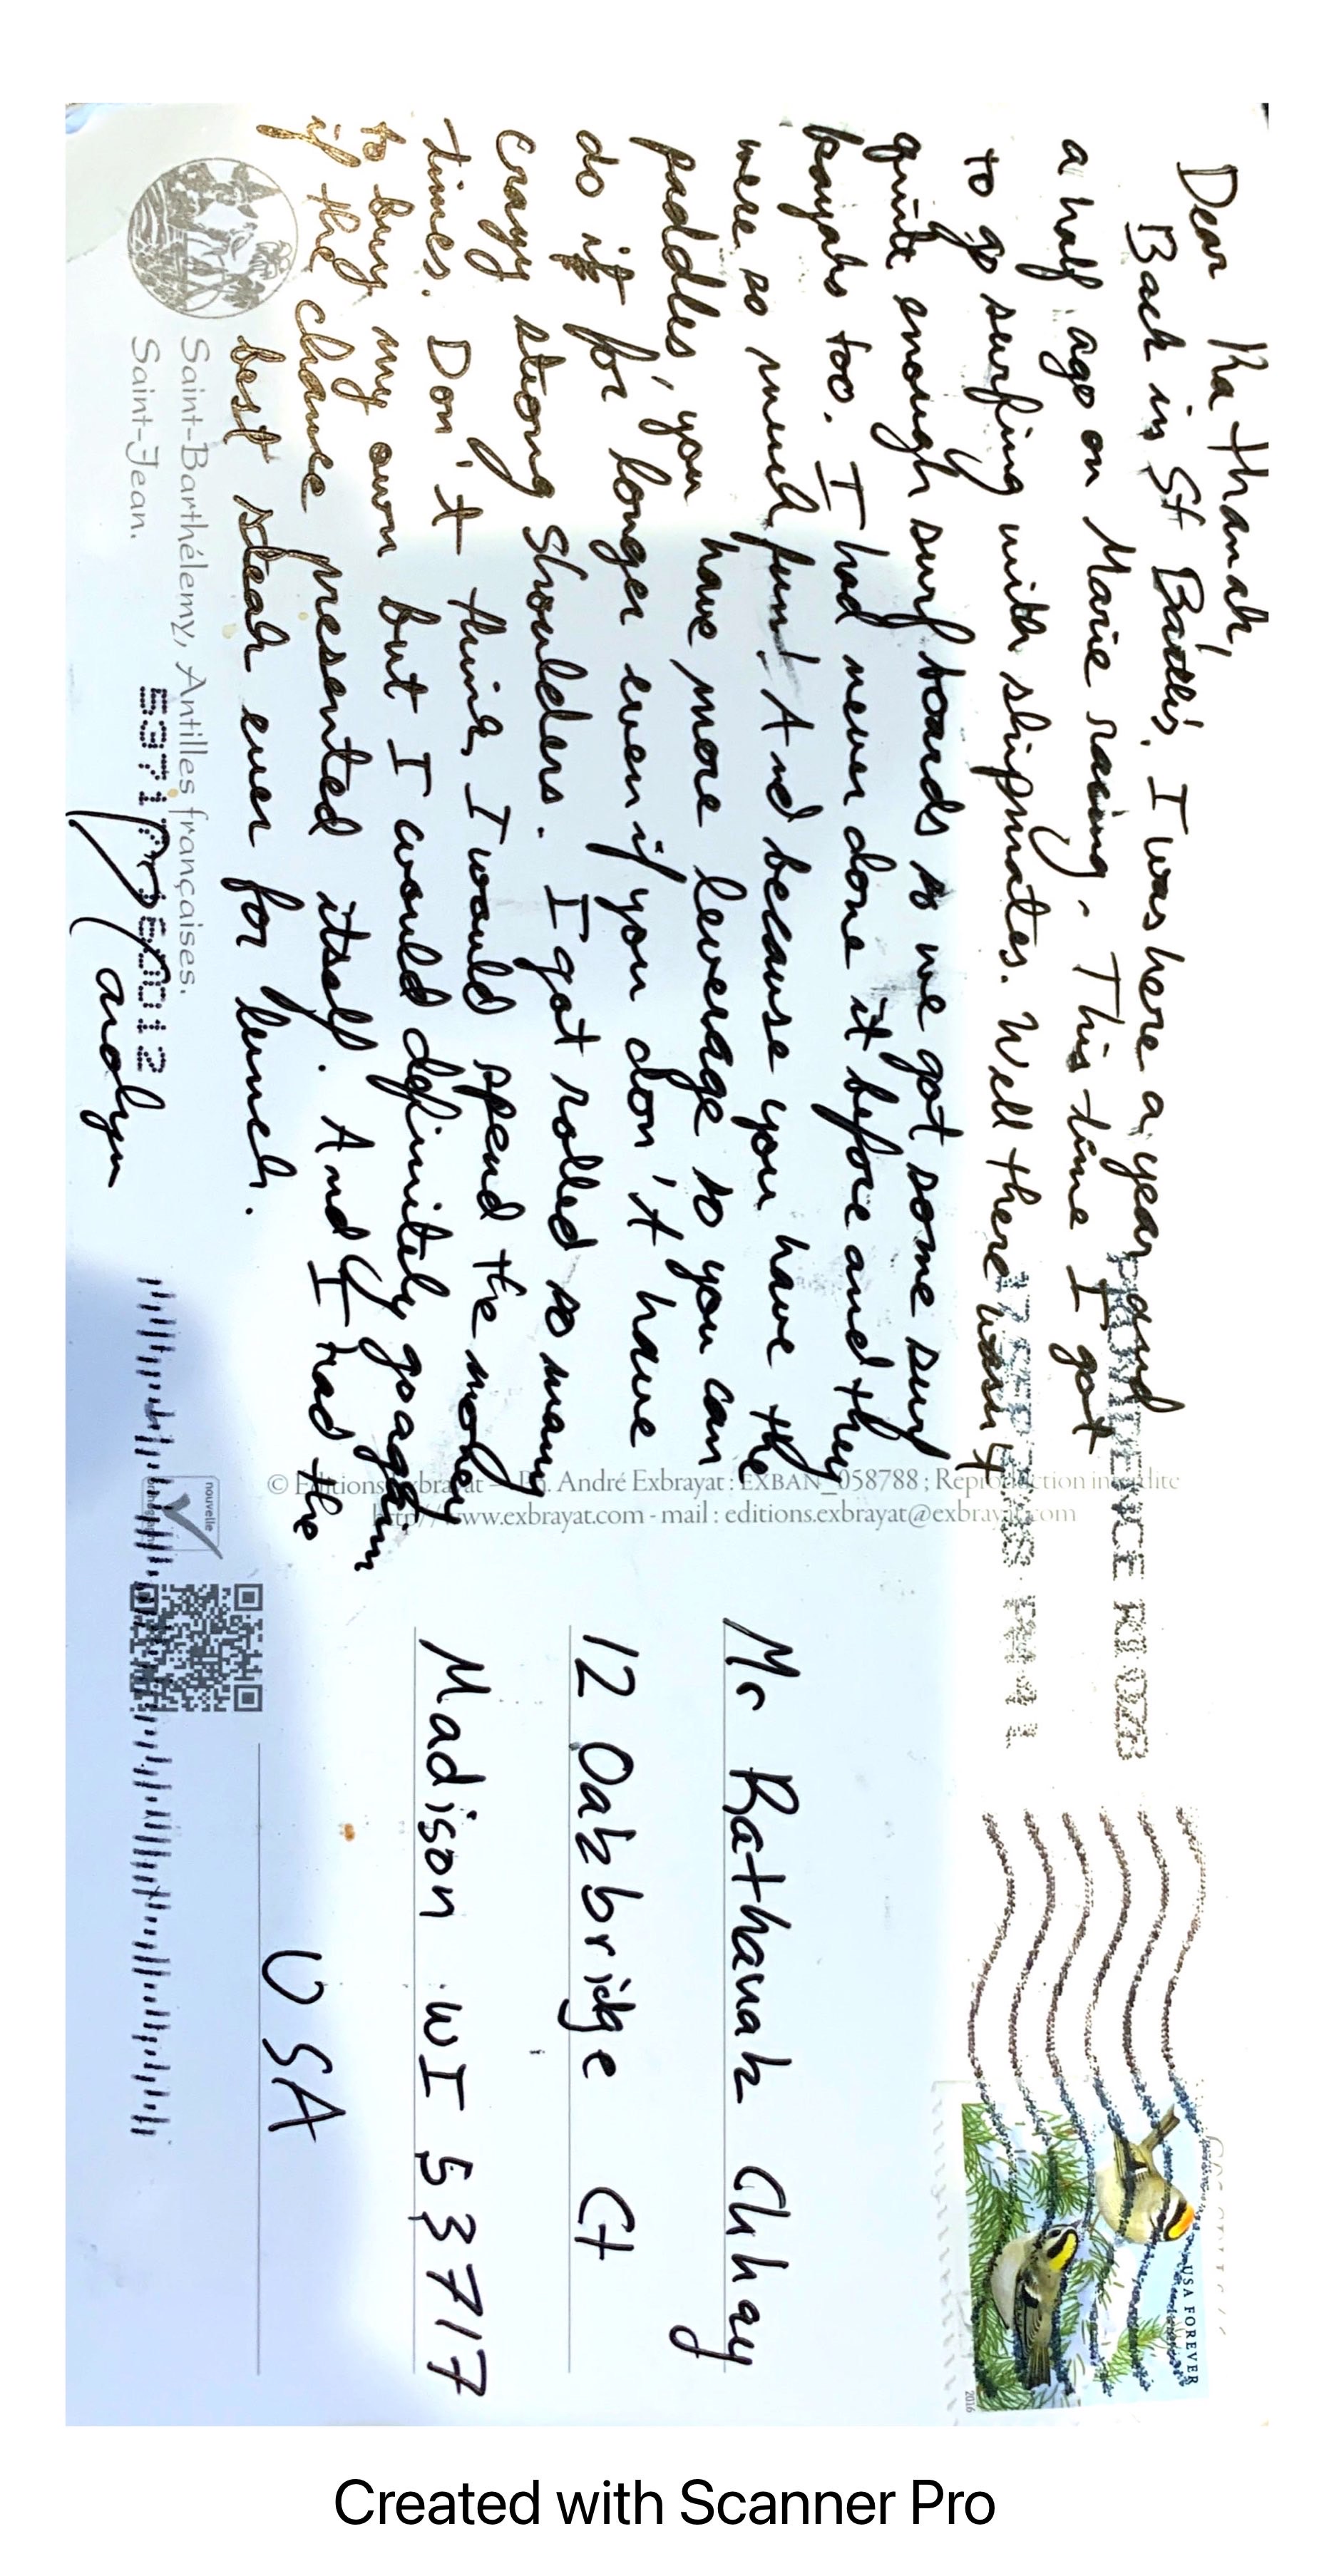 Dear Rathanak,
Back in St Barth's. I was here a year and
a half ago on Marie racing. This time I got
to go surfing with shipmates. Well there wasn't
quite enough surf boards so we got some surf
kayaks too. I had never done it before and they
were so much fun! And because you have the
paddles, you have more leverage so you can
do it for longer even if you don't have
crazy strong shoulders. I got rolled so many
times. Don't think I would spend the money
to buy my own but I would definitely go again
if the chance presented itself. And I had the
best steak ever for lunch.
Carolyn
Saint-Barthélemy, Antilles françaises.
Saint-Jean.
© Editions Exbrayat - Ph. André Exbrayat : EXBAN_058788 ; Reproduction interdite
http://www.exbrayat.com - mail : editions.exbrayat@exbrayat.com
nouvelle
PROVIDENCE RI 028
PM 4 L
USA FOREVER
2016
Mr Rathanak Chhay
12 Oakbridge Ct
Madison WI 53717
USA
Created with Scanner Pro